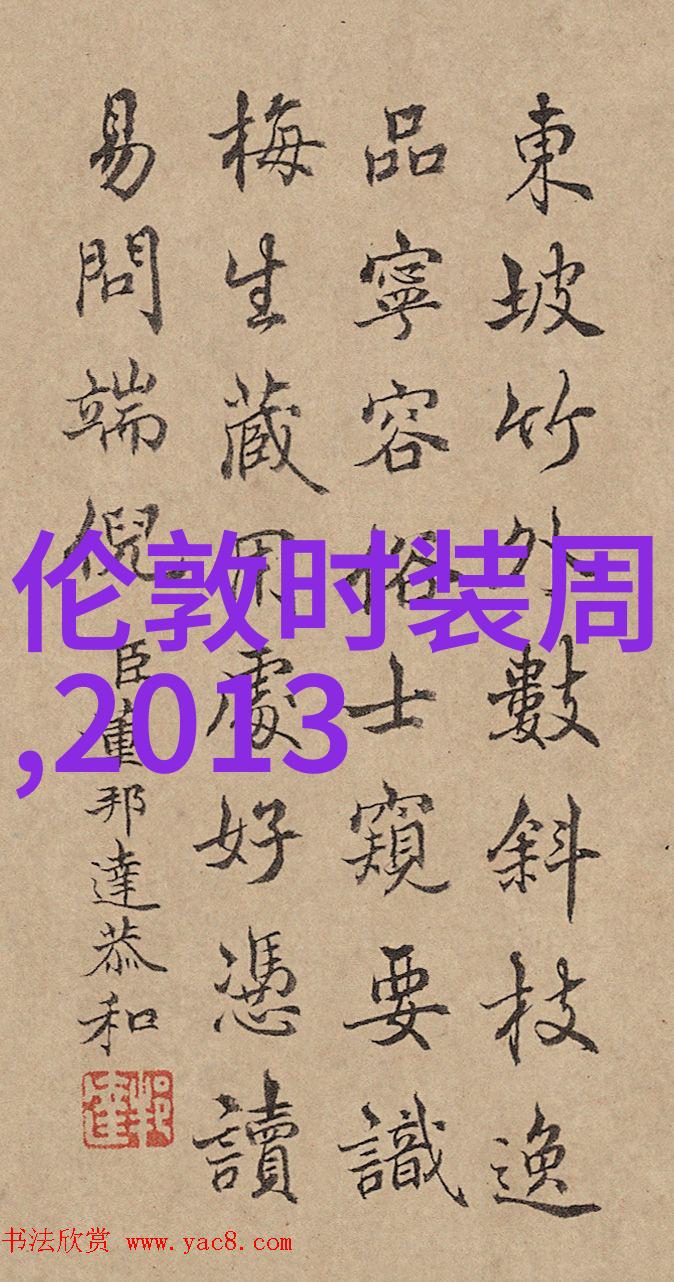 東坡竹外數斜枝逸
品寧容俗士窺要識
梅生藏用處好憑讀
易問端倪
臣董邦達恭和
邦達
伦敦时装周
,2013
书法欣赏 www.yac8.com